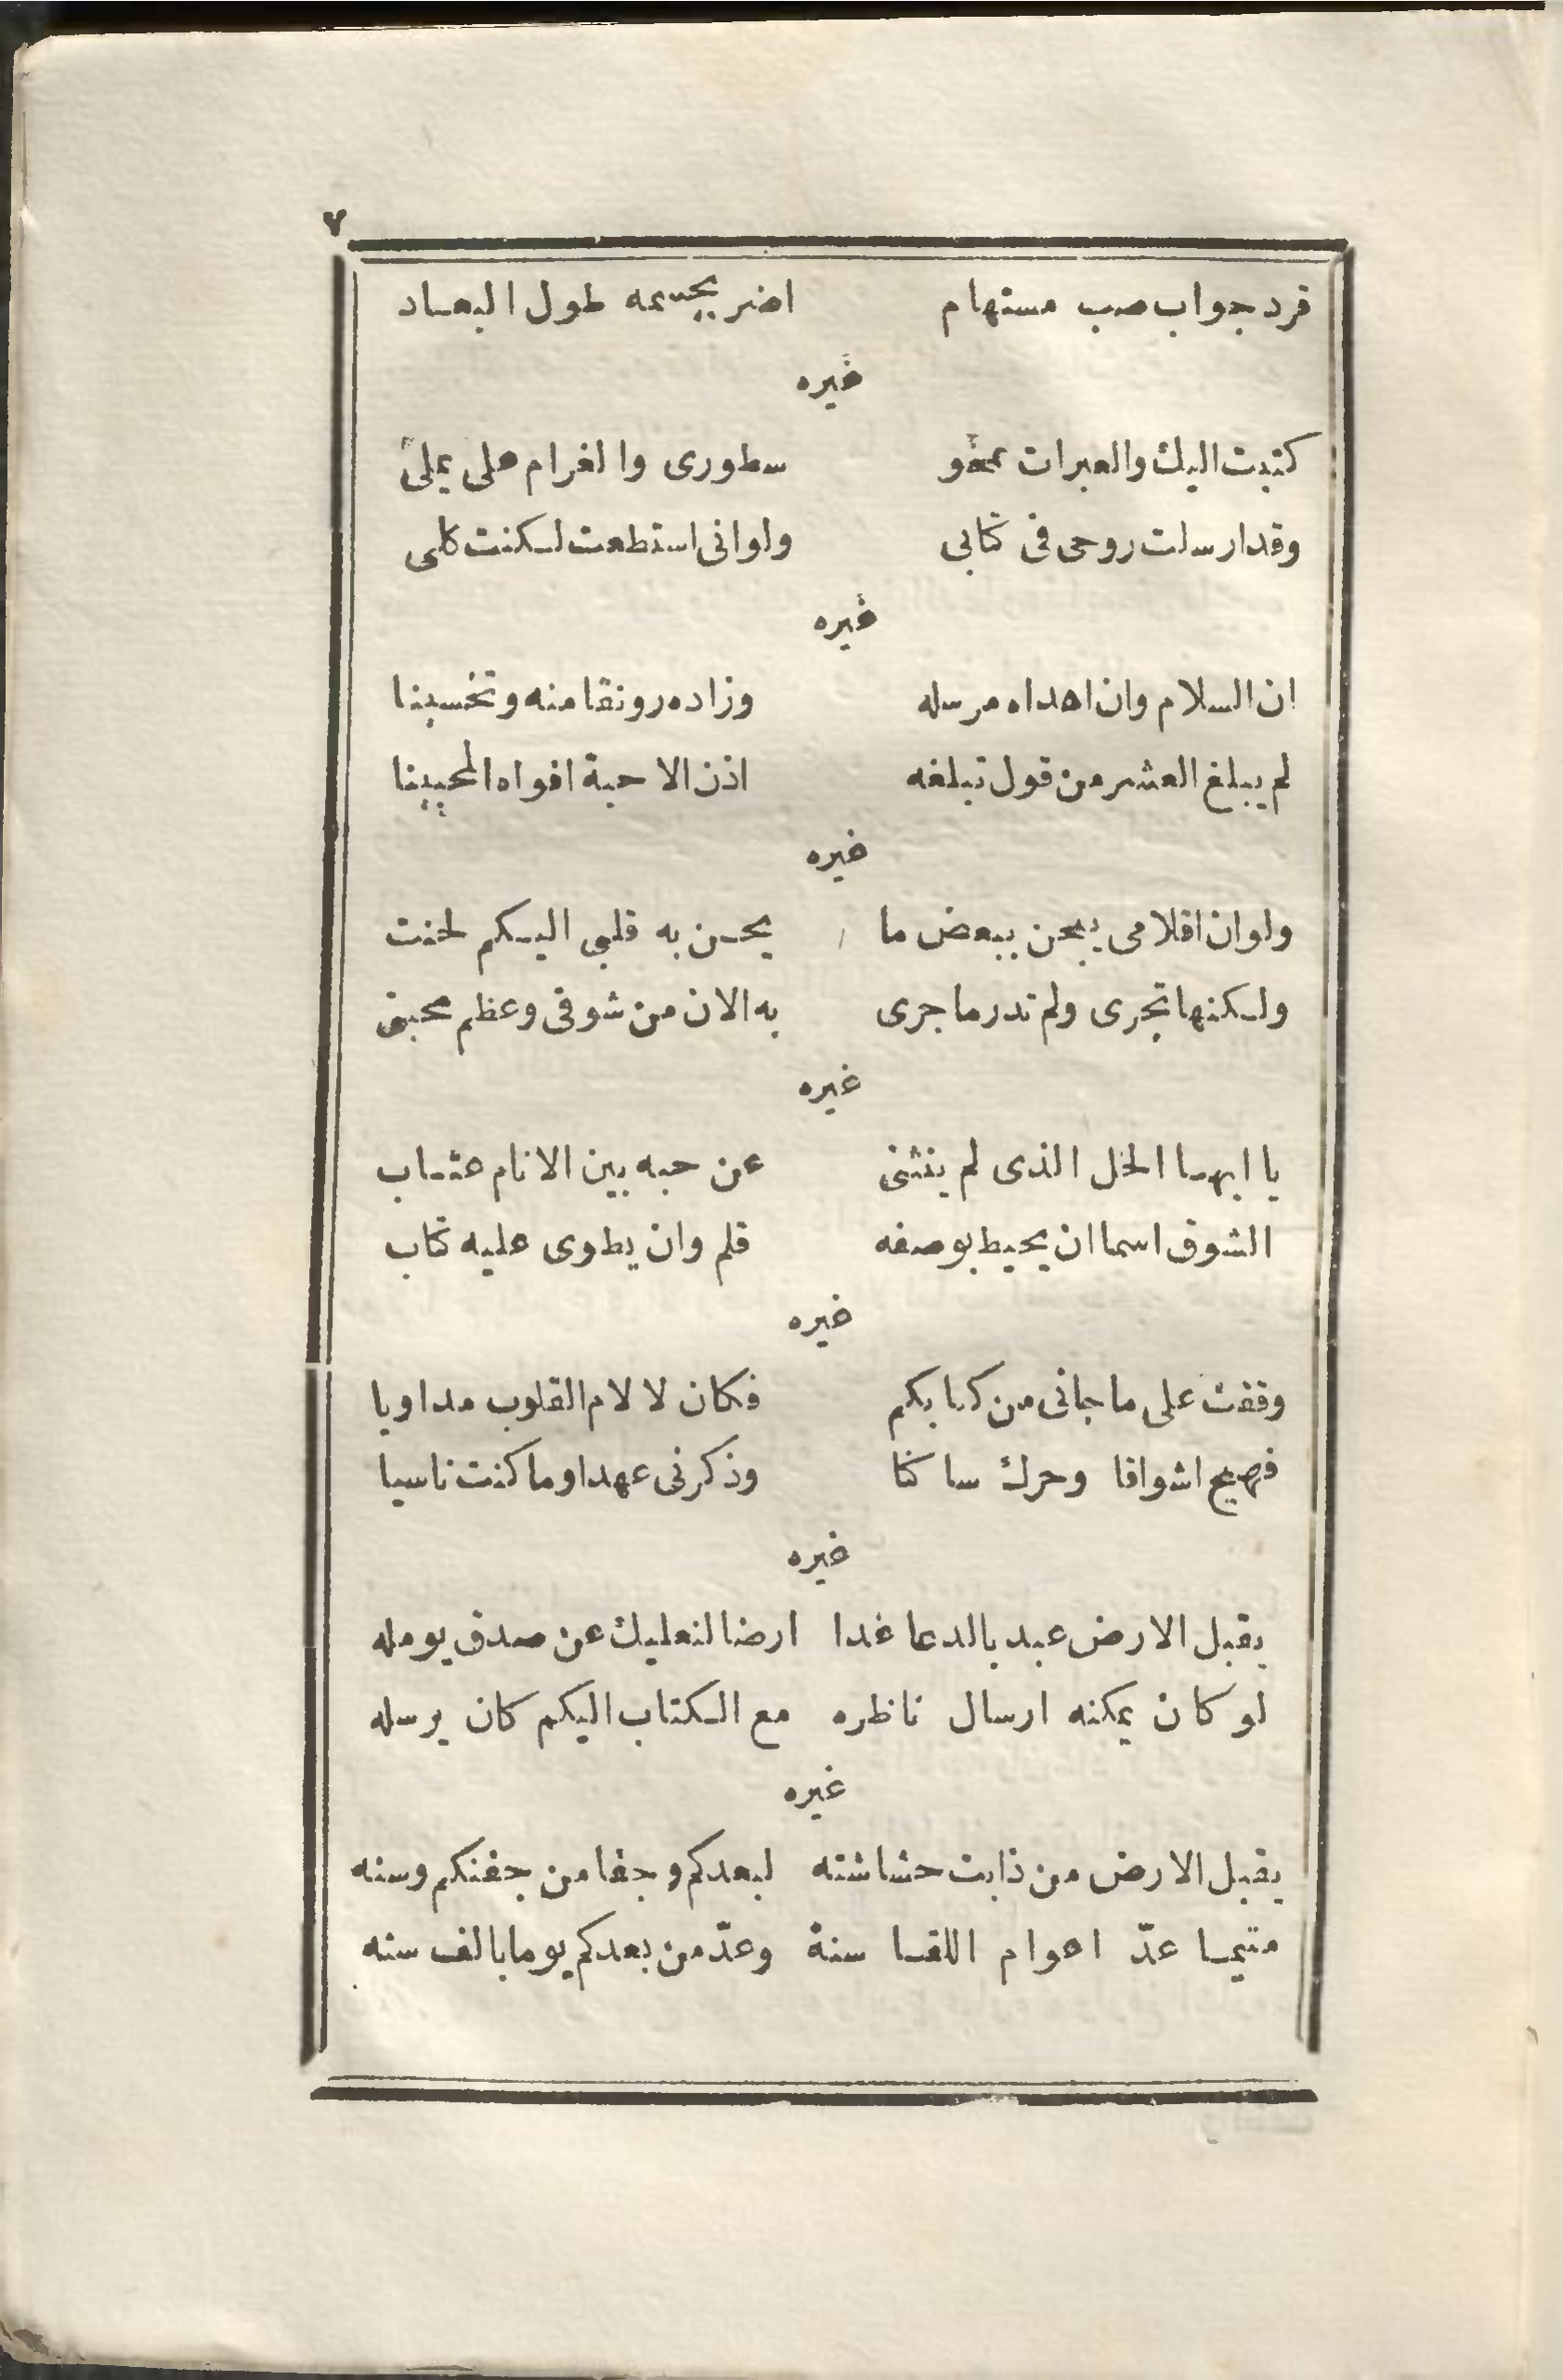 ٧
فرد جواب صب مستهام اضر بجسمه طول البعاد
غيره
كتبت اليك والعبرات تمحو سطورى والغرام على يملى
وقد ارسلت روحى فى كتابى ولو انى استطعت لكنت كلى
غيره
ان السلام وان اهداه مرسله وزاده رونقا منه وتحسينا
لم يبلغ العشر من قول تبلغه اذن الاحبة افواه المحبينا
غيره
ولو ان اقلامى يبحن ببعض ما يحن به قلبى اليكم لحنت
ولكنها تجرى ولم تدر ما جرى به الان من شوقى وعظم محبتى
غيره
يا ايها الخل الذى لم يثنى عن حبه بين الانام عتاب
الشوق اسما ان يحيط بوصفه قلم وان يطوى عليه كتاب
غيره
وقفت على ما جانى من كتابكم فكان لالام القلوب مداويا
فهيج اشواقا وحرك ساكنا وذكرنى عهدا وما كنت ناسيا
غيره
يقبل الارض عبد بالدعا غدا ارضا لنعليك عن صدق يومله
لو كان يمكنه ارسال ناظره مع الكتاب اليكم كان يرسله
غيره
يقبل الارض من ذابت حشاشته لبعدكم وجفا من جفنكم وسنه
متيما عدّ اعوام اللقا سنة وعدّ من بعدكم يوما بالف سنه